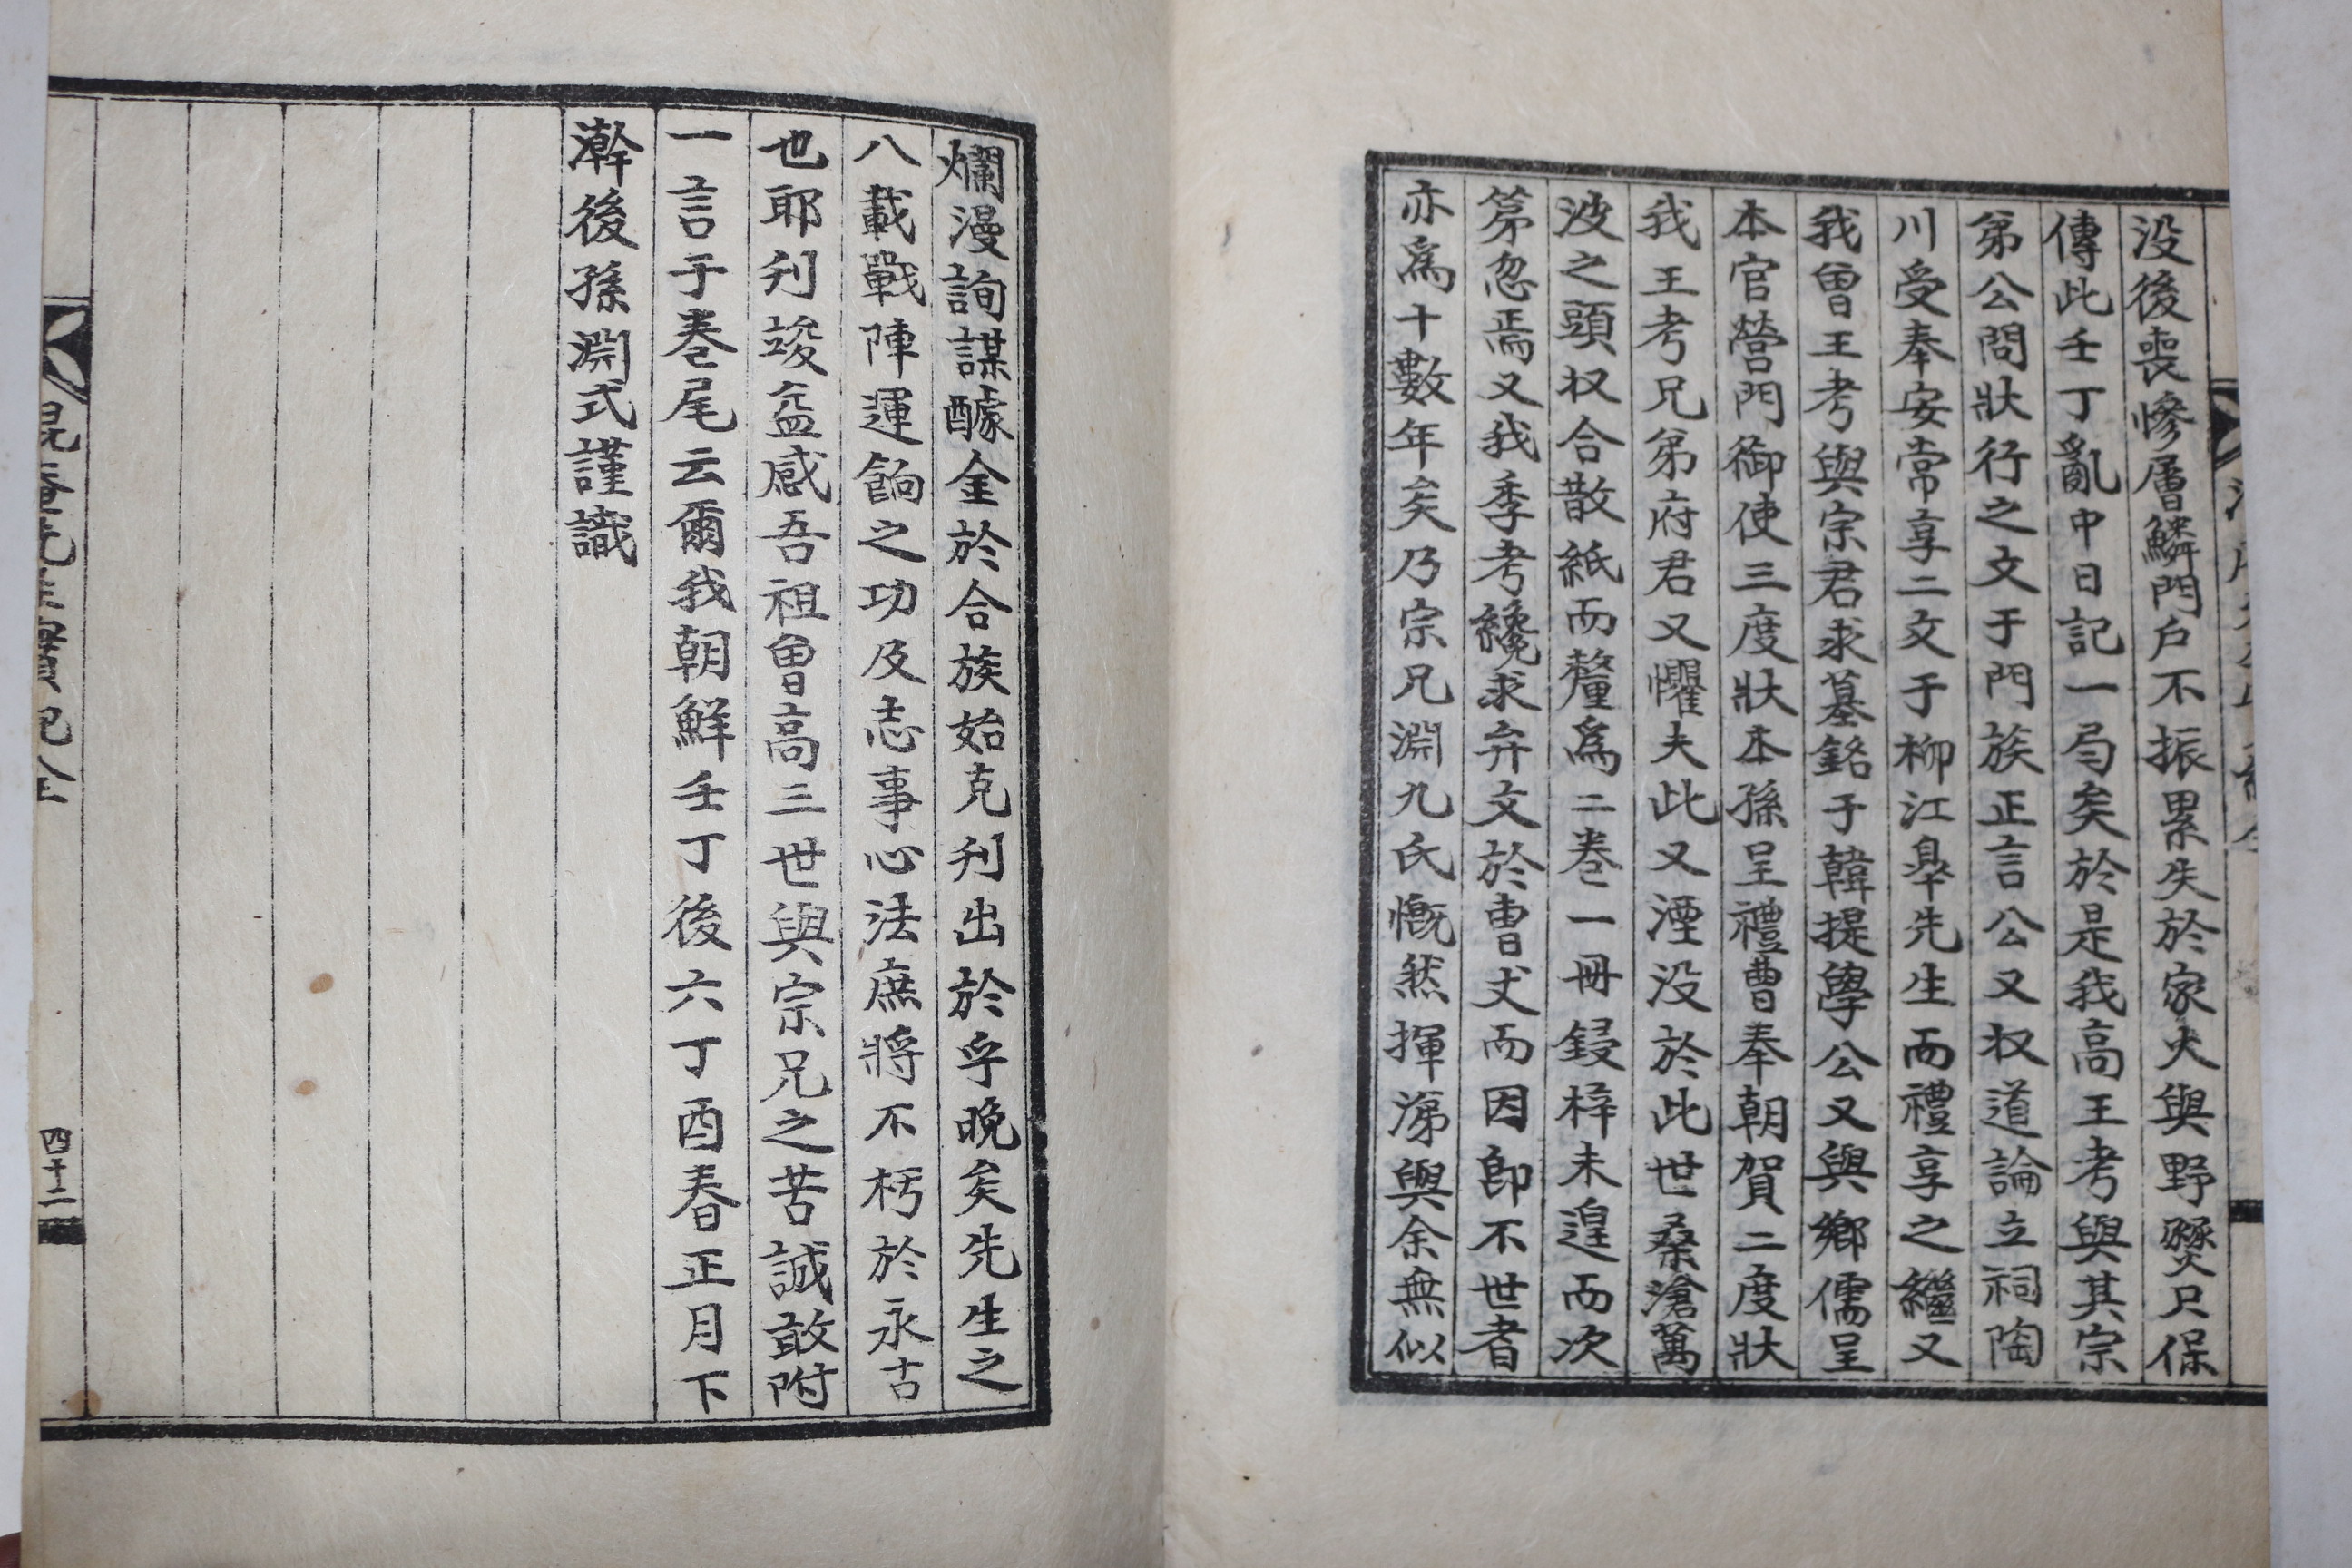 没後喪慘層鱗門戶不振累失於家火與野燹只保
傳此壬丁亂中日記一局矣於是我高王考與其宗
弟公問狀行之文于門族正言公又权道論立祠陶
川受奉安常享二文于柳江皐先生而禮享之繼又
我曾王考與宗君求墓銘于韓提學公又與鄉儒呈
本官營門御使三度狀本孫呈禮曹奉朝賀二度狀
我王考兄弟府君又懼夫此又湮没於此世桑滄萬
波之頭权合散紙而釐爲二卷一冊鋟梓未遑而次
第忽焉又我季考纔求弁文於曺丈而因卽不世者
亦爲十數年矣乃宗兄淵九氏慨然揮涕與余無似
爛漫詢謀醵金於合族始克刋出於乎晚矣先生之
八載戰陣運餉之功及志事心法庶將不朽於永古
也耶刋竣益感吾祖曾高三世與宗兄之苦誠敢附
一言于卷尾云爾我朝鮮壬丁後六丁酉春正月下
澣後孫淵式謹識
昆菴先生實記全
四十二